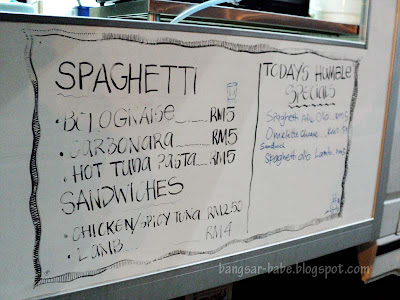 SPAGHETTI
• BOLOGNAISE RM5
• CARBONARA RM5
• HOT TUNA PASTA RM5
SANDWICHES
• CHICKEN/SPICY TUNA RM2.50
• LAMB RM4
TODAY'S HUMBLE
SPECIALS
Spaghetti Olio RM5
Omelette Cheese RM
Sandwich
Spaghetti Olio Lamb RM
bangsar-babe.blogspot.com